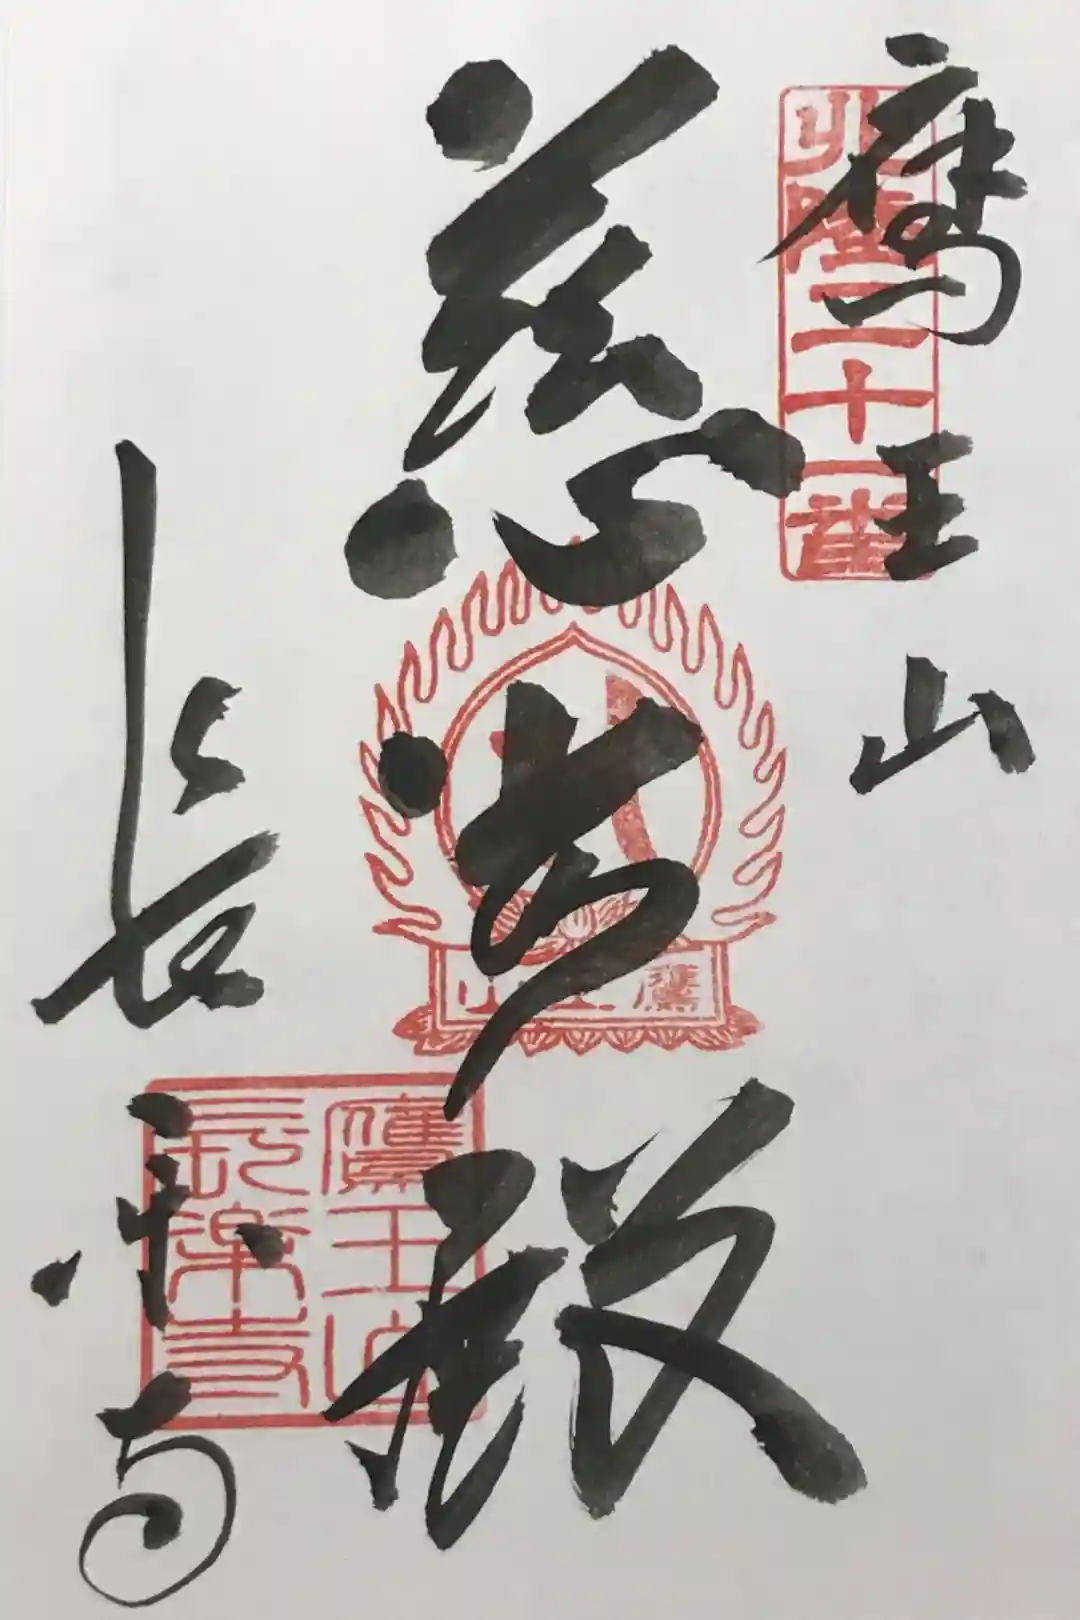 鷹王山
北陸二十一番
慈 殿
鷹王山
長楽寺
鷹王山
長楽寺